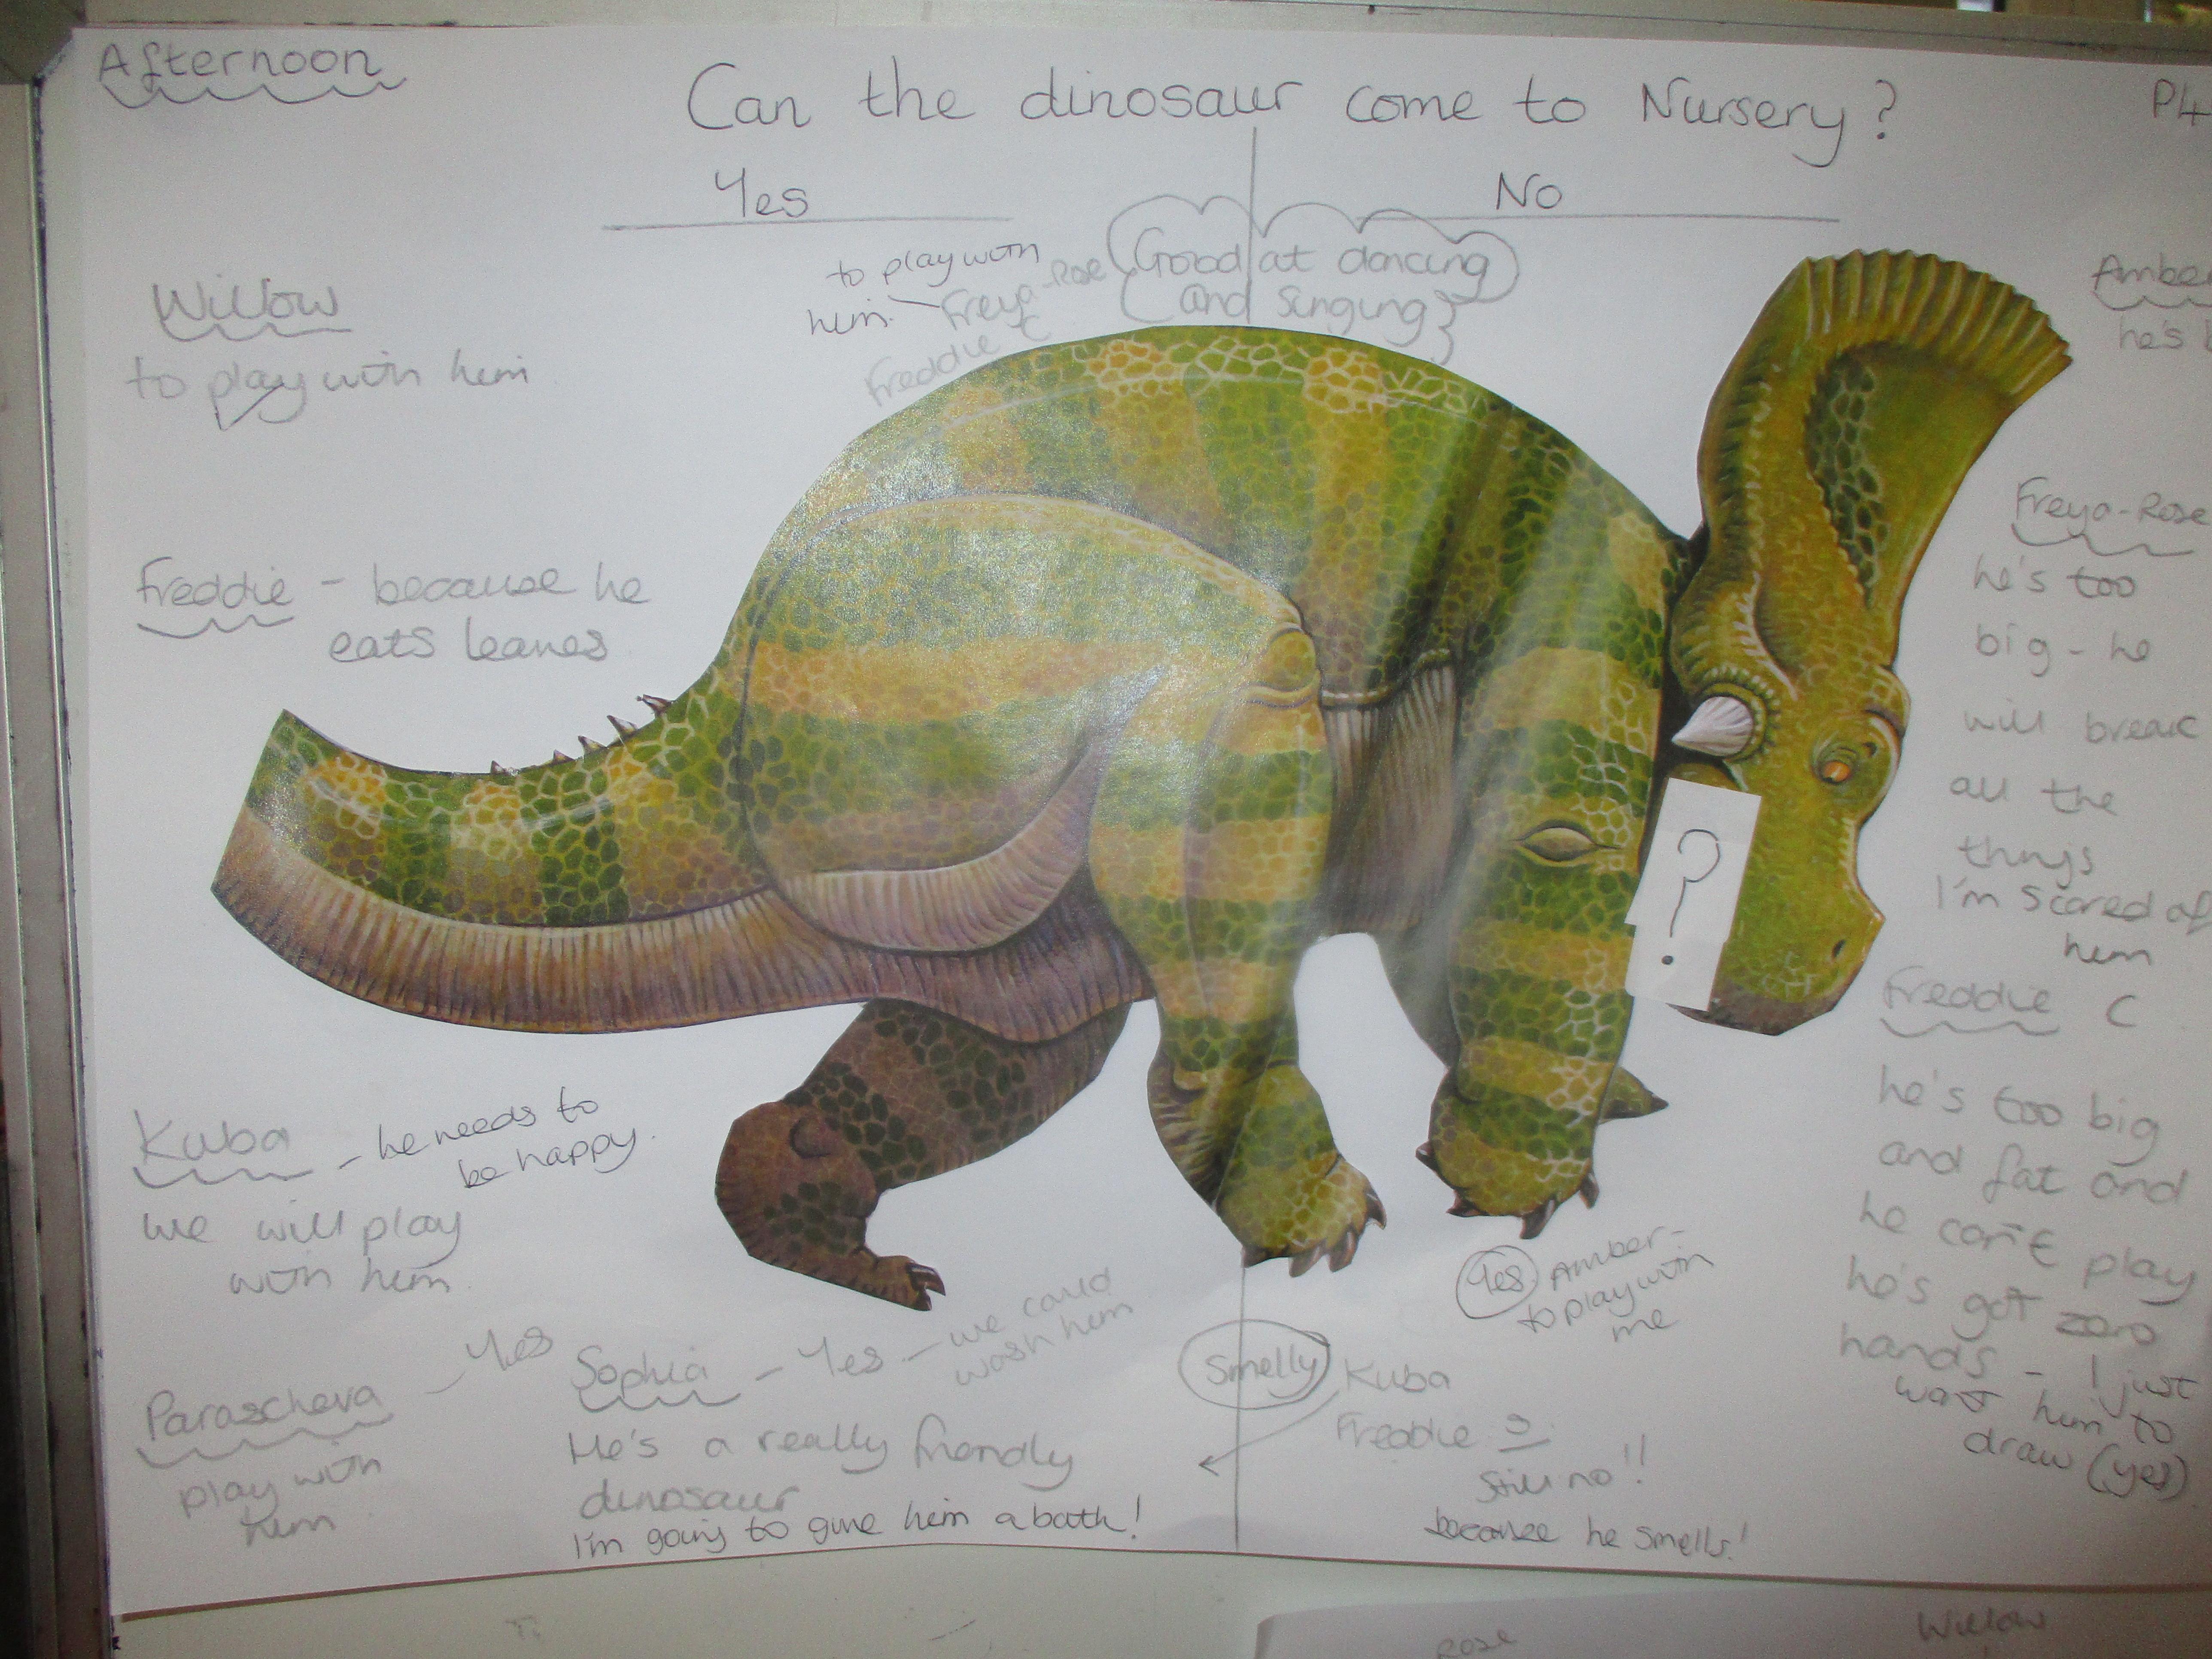 Afternoon
Can the dinosaur come to Nursery?
P4
Yes
No
Willow
to play with him
to play with
him.
Freya-Rose
Freddie C
Good at dancing
and singing
Amber
he's
Freddie - because he
eats leaves
Freya-Rose
he's too
big - he
will break
all the
things
I'm scared of
him
?
Freddie C
he's too big
and fat and
he can't play
he's got zero
hands - I just
want him to
draw (yes)
Kuba - he needs to
be happy.
we will play
with him.
Yes Amber -
to play with
me
Parascheva - Yes
play with
him
Sophia - Yes - we could
wash him
He's a really friendly
dinosaur
I'm going to give him a bath!
Smelly Kuba
Freddie S
Still no!!
because he smells!
Rose
Willow